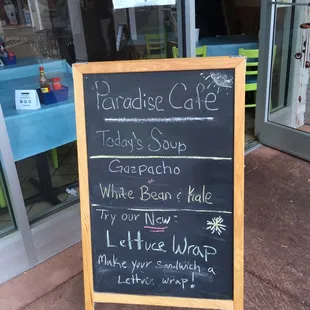 PARADISE CAFE
Paradise Café
Today's Soup
Gazpacho
or
White Bean & Kale
Try our New:
Lettuce Wrap
Make your Sandwich a
Lettuce wrap!